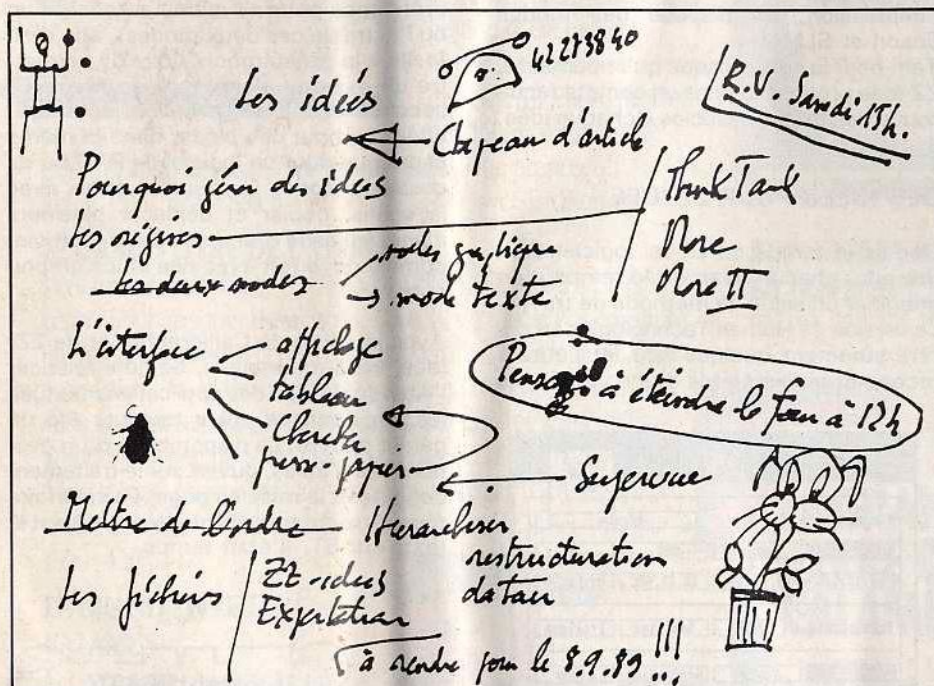 42273840
R.V. Samedi 15h.
Les idées
Chapeau d'article
Pourquoi gérer des idées
Les origines
Think Tank
More
More II
Les deux modes
mode graphique
mode texte
L'interface
affichage
tableau
Chercher
presse-papier
Penser à éteindre le four à 12h
Supervue
Mettre de l'ordre
Hierarchiser
restructuration
datation
Les fichiers
ZZ-idées
Exportation
à rendre pour le 8.9.89 !!!